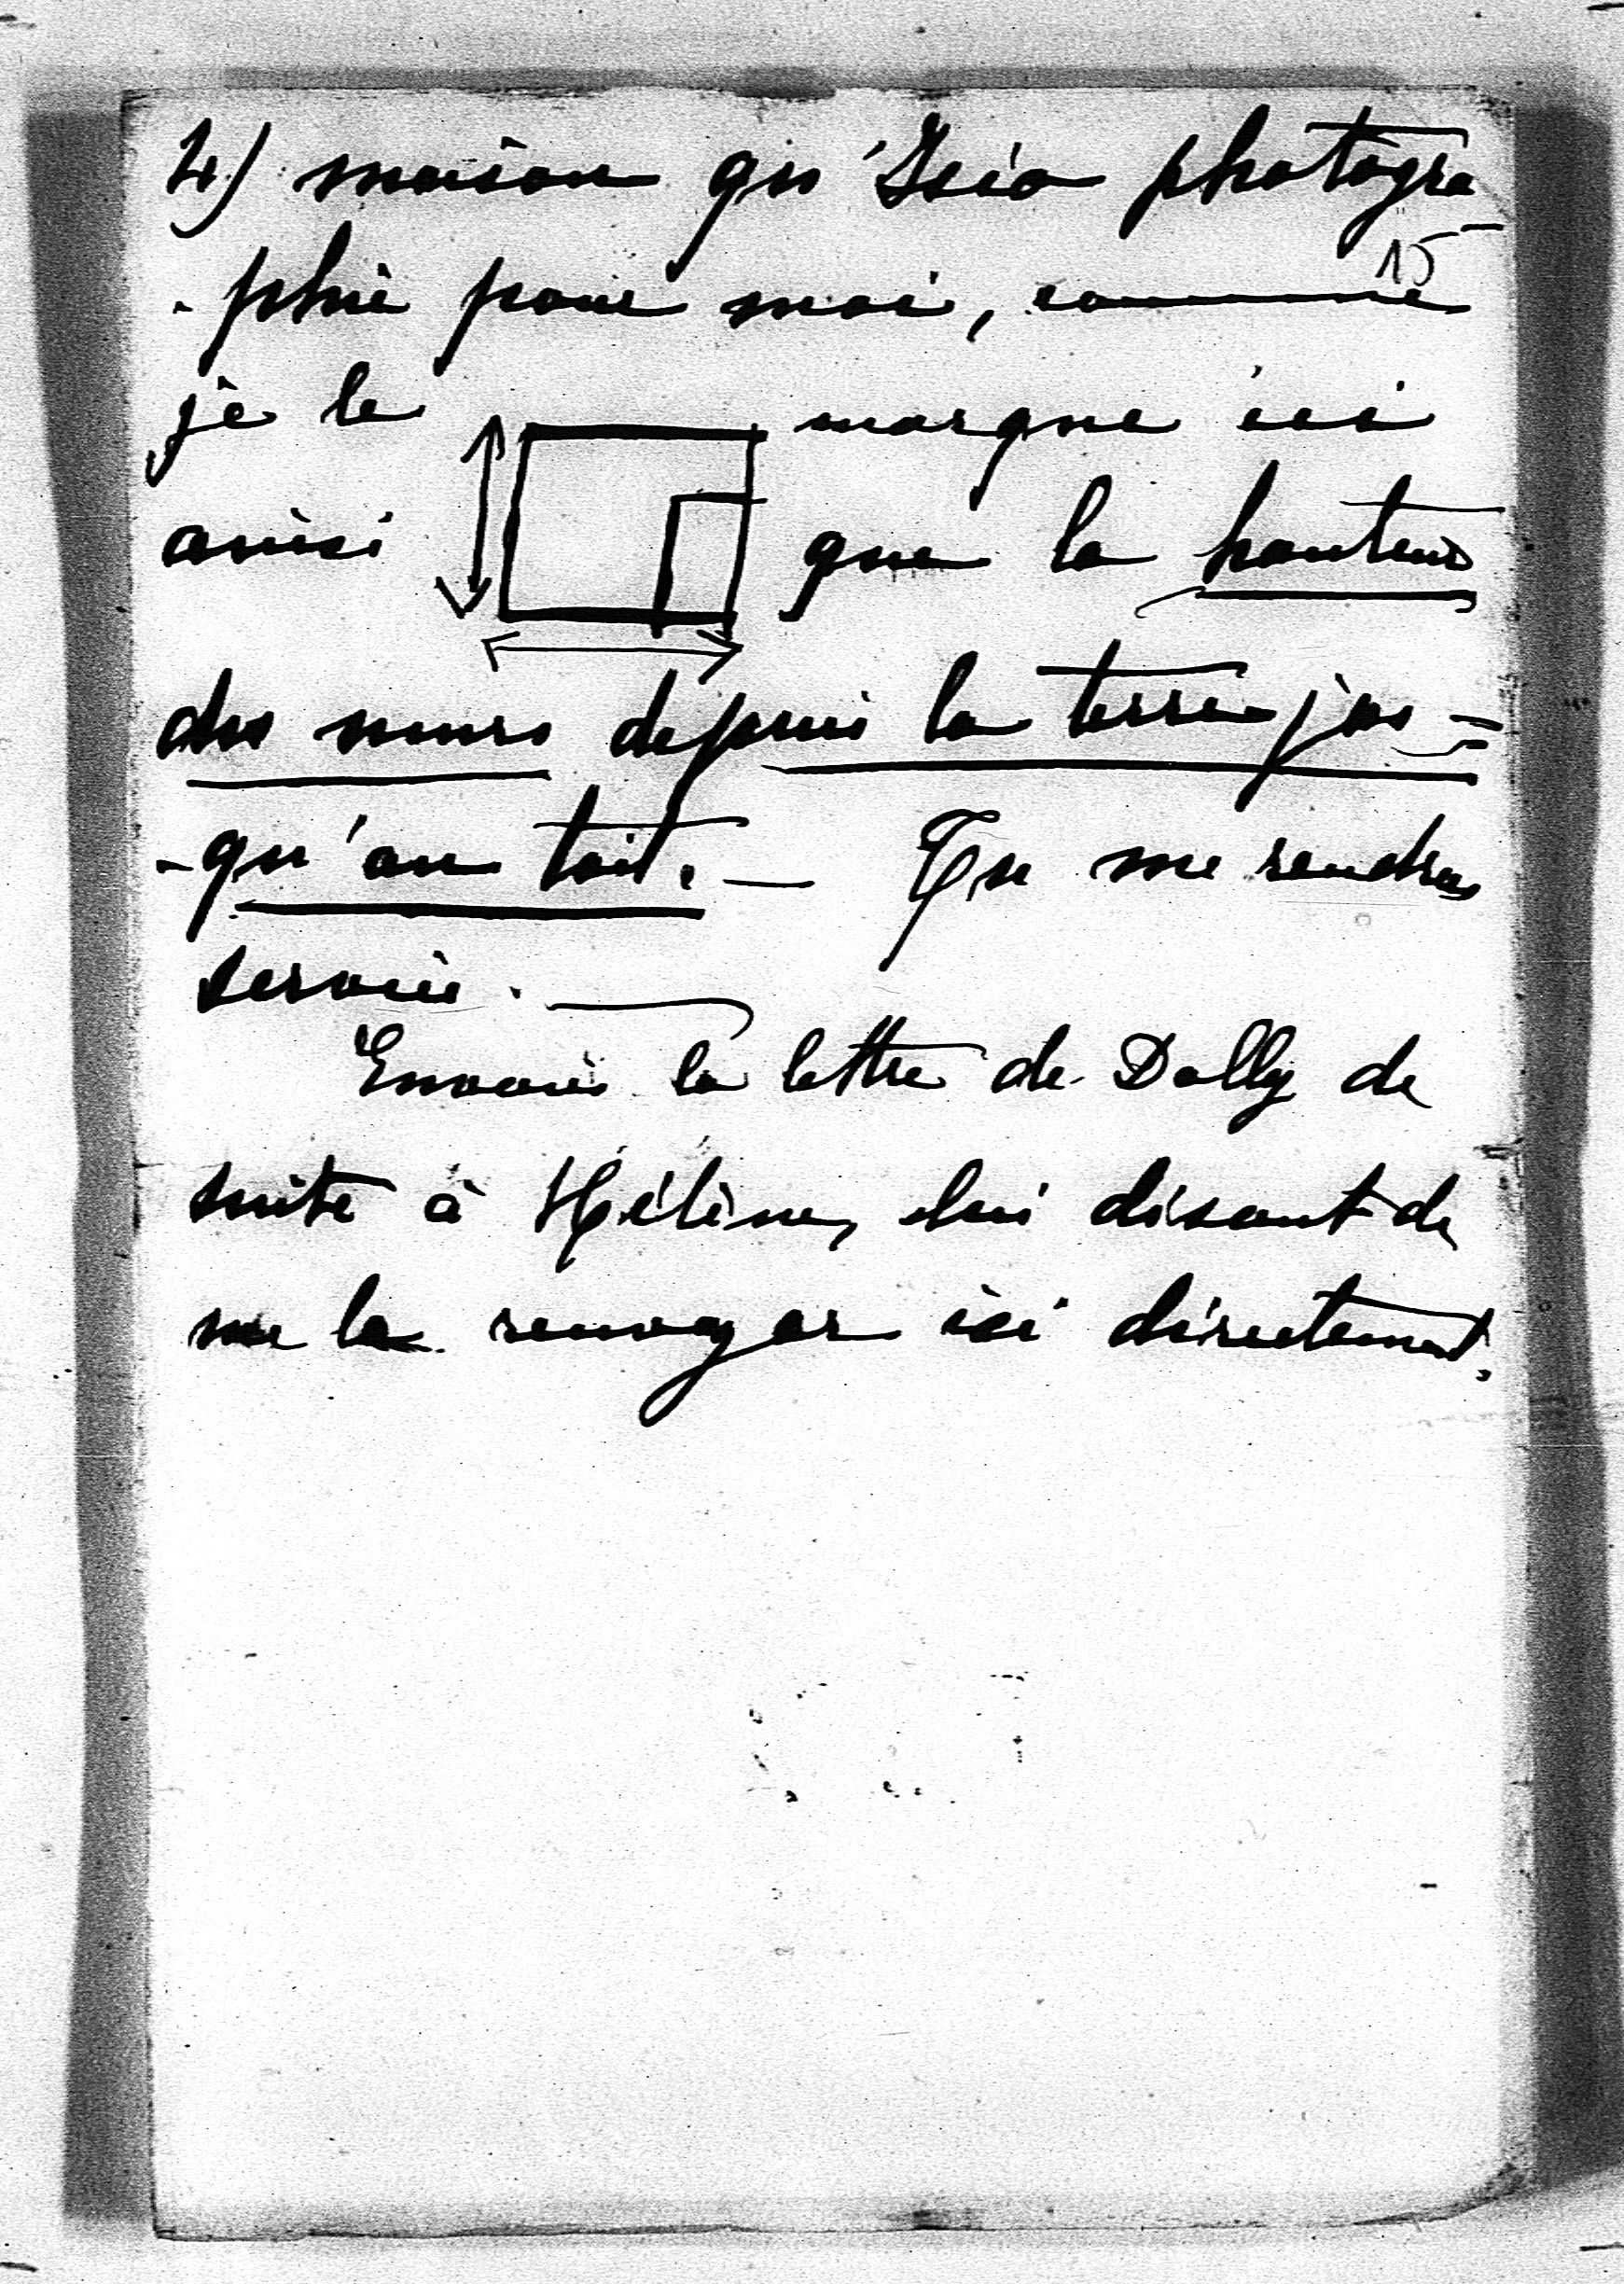 4) maison qu'Isia photogra
15
-phié pour moi, comme
je le marque ici
ainsi que la hauteur
des murs depuis la terre jus=
-qu'au toit. — Tu me rendras
service. —
Envoie la lettre de Dolly de
suite à Hélène, lui disant de
me la renvoyer ici directement.